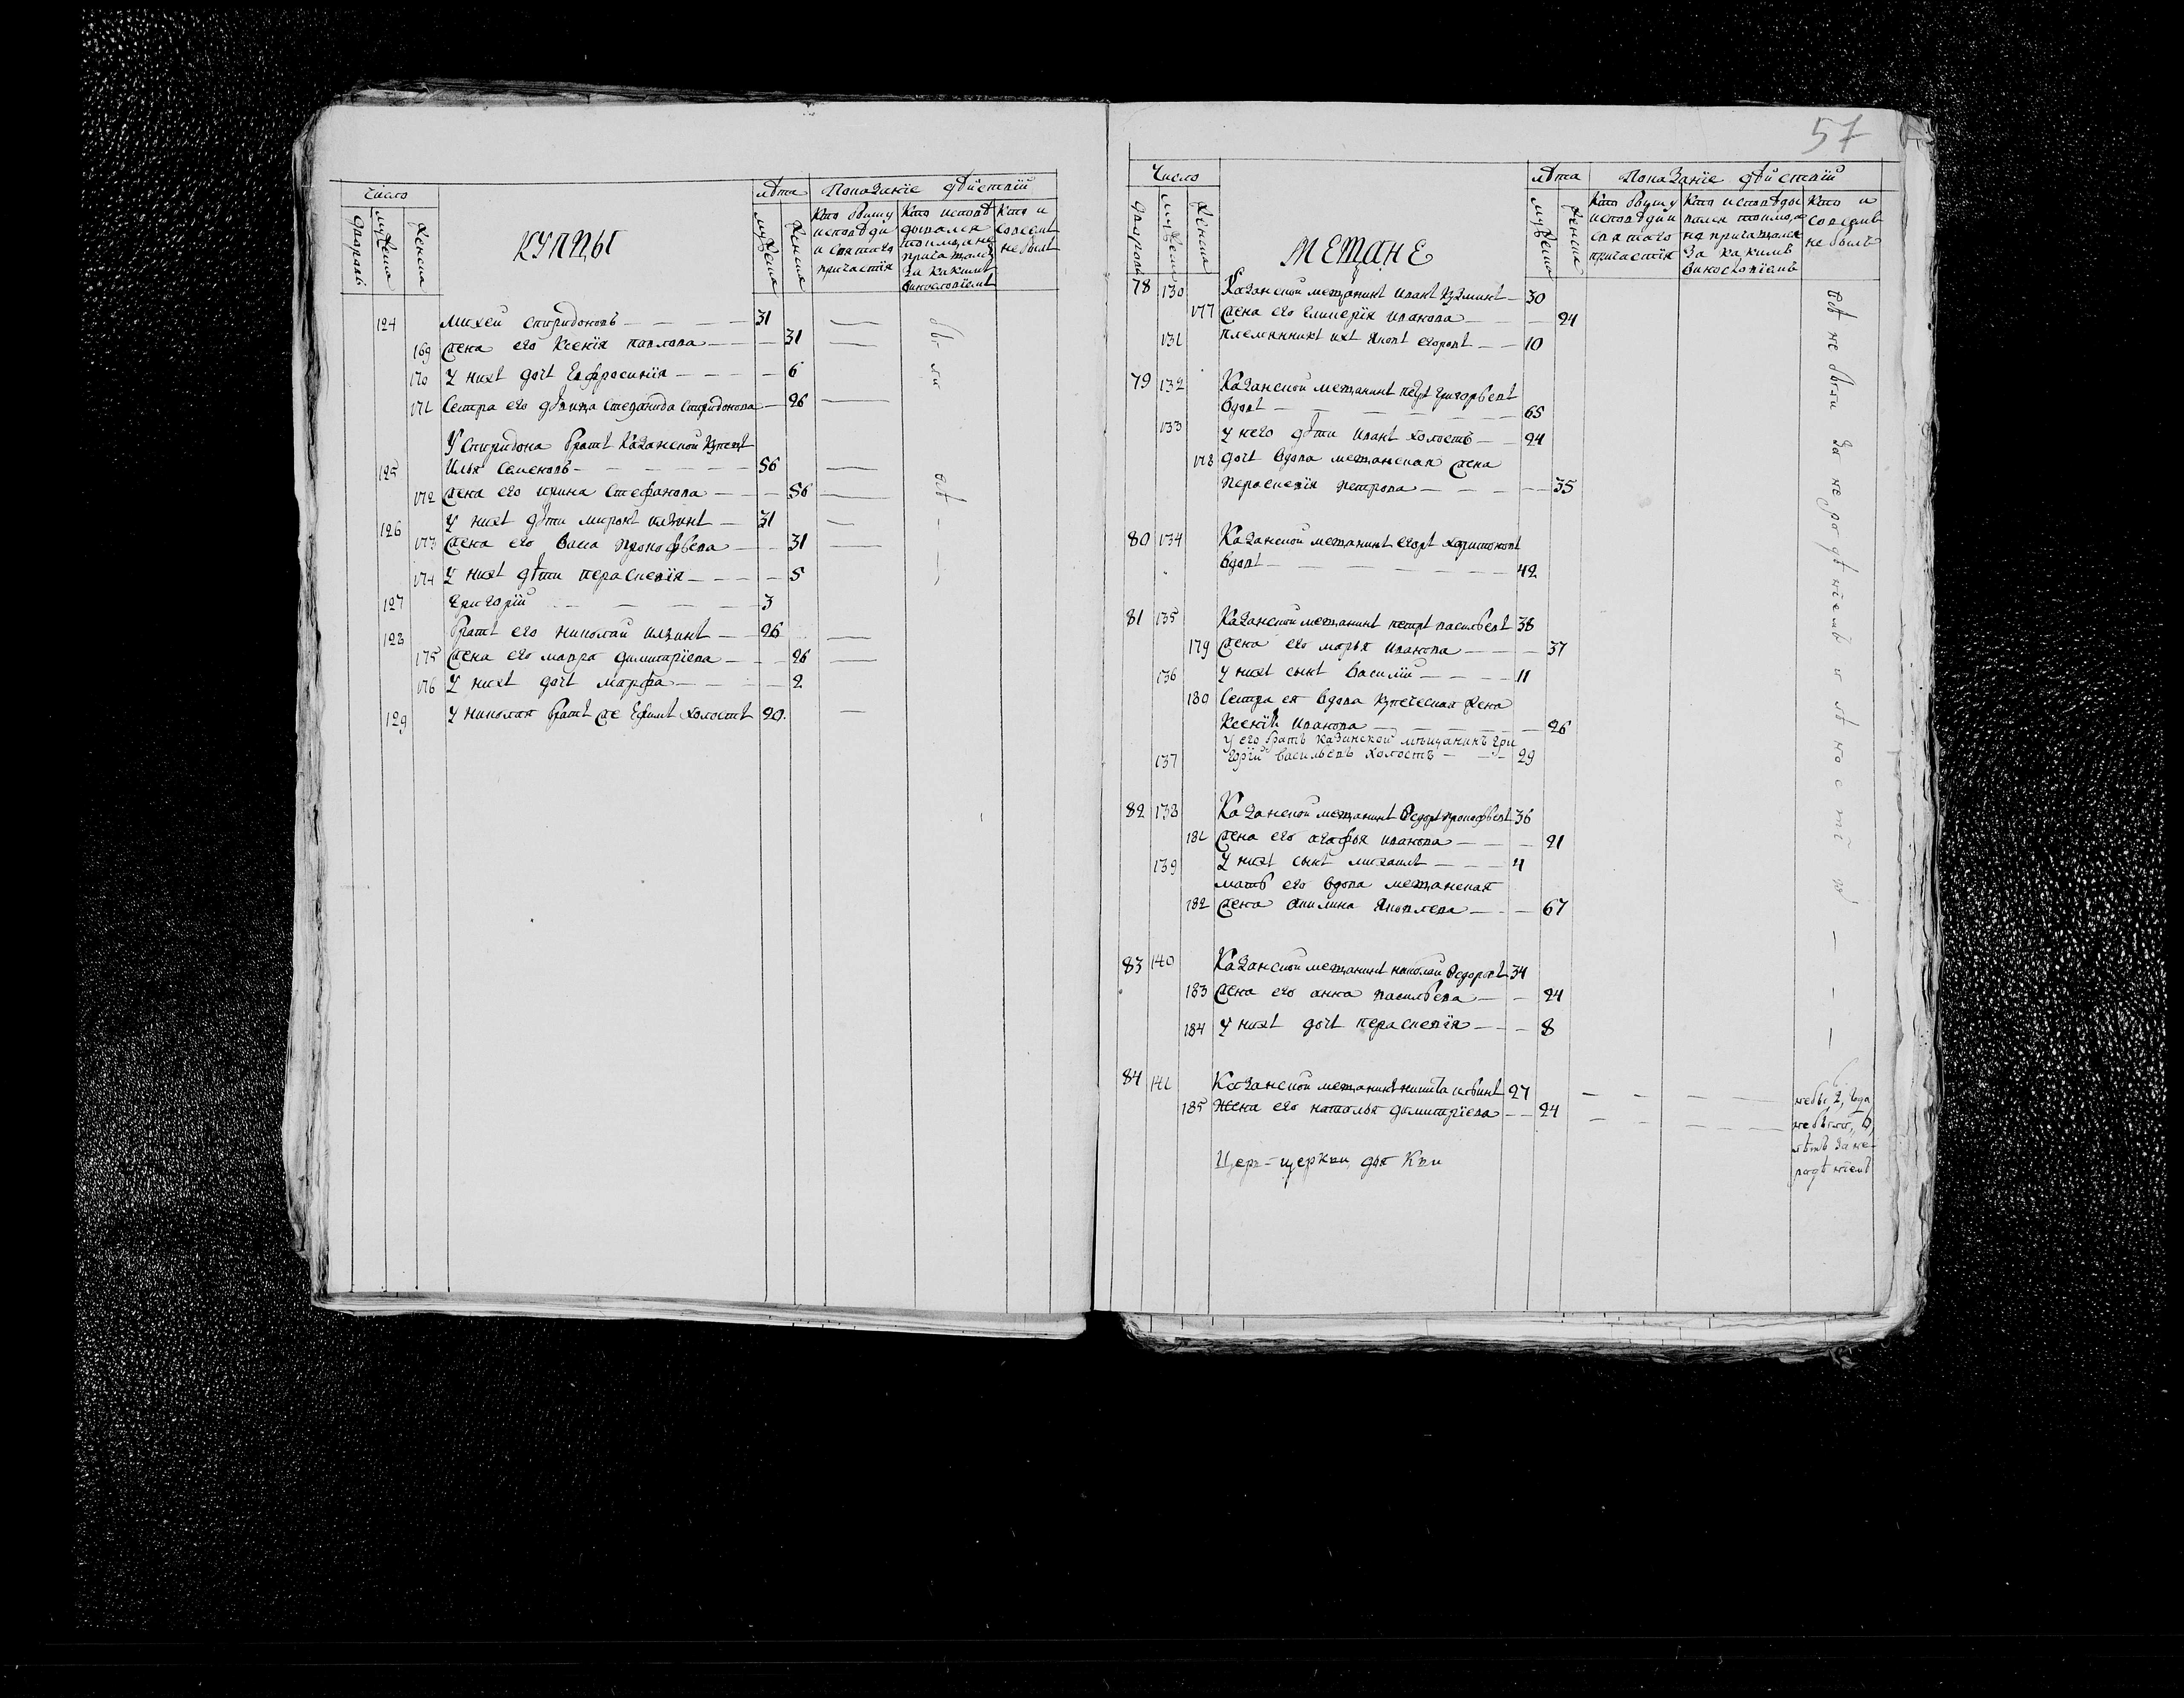 Число
лѣта Показание дѣйствiй
дворовъ мужеска женска
КУПЦЫ
мужеска женска
Кто былъ у исповѣди и святаго причастiя
Кто исповѣдывался токмо, а не причащался за какимъ винословiемъ
Кто и совсемъ не былъ
124 Михей Спиридоновъ 31
169 жена его Ксенiя Павлова 31
170 У нихъ дочь Евфросинiя 6
171 Сестра его дѣвица Стефанида Спиридонова 26
были
У Спиридона братъ Казанской купецъ
125 Илья Семеновъ 56
172 жена его Ирина Стефанова 56
всѣ
126 У нихъ дѣти Миронъ Ильинъ 31
173 жена его Васса Прокофьева 31
174 У нихъ дѣти Пераскевiя 5
127 Григорiй 3
128 братъ его Николай Ильинъ 26
175 жена его Мавра Димитрiева 26
176 У нихъ дочь Марфа 2
129 У Николая братъ же Ефимъ холостъ 20.
57
Число
лѣта Показанiе дѣйствiй
дворовъ мужеска женска
МЕЩАНЕ
мужеска женска
Кто былъ у исповѣди и святаго причастiя
Кто исповѣдывался токмо, а не причащался за какимъ винословiемъ
Кто и совсемъ не былъ
78 130 Казанской мещанинъ Иванъ Кузминъ 30
177 жена его Гликерiя Иванова 24
131 племянникъ ихъ Яковъ Егоровъ 10
79 132 Казанской мещанинъ Петръ Григорьевъ
вдовъ 65
133 У него дѣти Иванъ холостъ 24
178 дочь вдова мещанская жена
Пераскевiя Петрова 35
80 134 Казанской мещанинъ Егоръ Харитоновъ
вдовъ 42
81 135 Казанской мещанинъ Петръ Васильевъ 38
179 жена его Марья Иванова 37
136 У нихъ сынъ Василiй 11
180 Сестра ея вдова купеческая жена
Ксенiя Иванова 26
У его братъ казанской мѣщанинъ Гри
137 горiй Васильевъ холостъ 29
82 138 Казанской мещанинъ Федоръ Прокофьевъ 36
181 жена его Агафья Иванова 21
139 У нихъ сынъ Михаилъ 4
мать его вдова мещанская
182 жена Акилина Яковлева 67
83 140 Казанской мещанинъ Николай Федоровъ 34
183 жена его Анна Васильева 24
184 У нихъ дочь Пераскевiя 8
всѣ не были за нерадѣнiемъ и лѣностiю
84 141 Казанской мещанинъ Никита Ильинъ 27
185 Жена его Наталья Димитрiева 24
небы, 2, года
небыли, 6,
лѣтъ за не-
радѣнiемъ